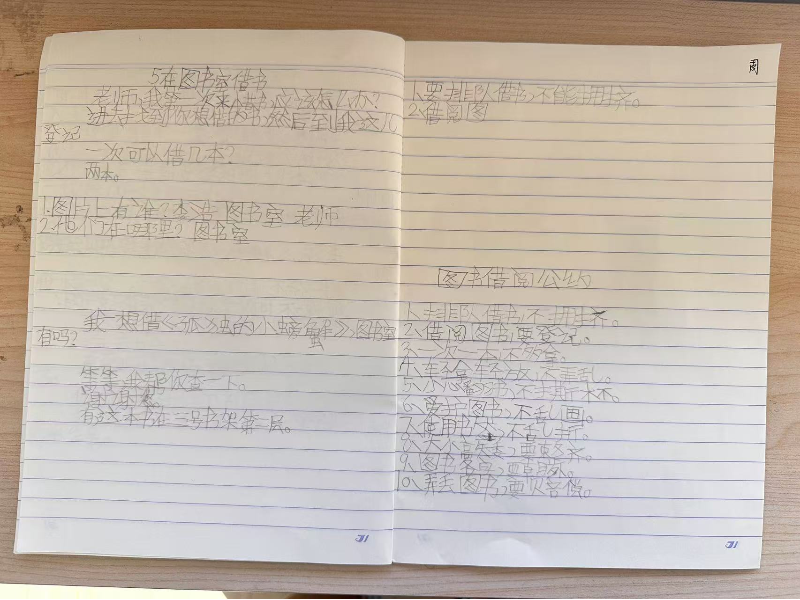 5在图书室借书
老师,我第一次来借书,应该怎么办?
进去找到你想借的书,然后到我这儿
登记
一次可以借几本?
两本。
1.图片上有谁? 李浩 图书室 老师
2.他们在哪里? 图书室
我想借《孤独的小螃蟹》,图书室
有吗?
等等,我帮你查一下。
谢谢
有,这本书在三号书架第一层。
周
1、要排队借书,不能拥挤。
2、借阅图
图书借阅公约
1、排队借书,不拥挤。
2、借阅图书,要登记。
3、一次一本,不多拿。
4、轻拿轻放,不乱。
5、小心翻书,不折
6、爱护图书,不乱画。
7、使用书,不乱
8、大小,要
9、图书,要
10、弄丢图书,要赔偿。